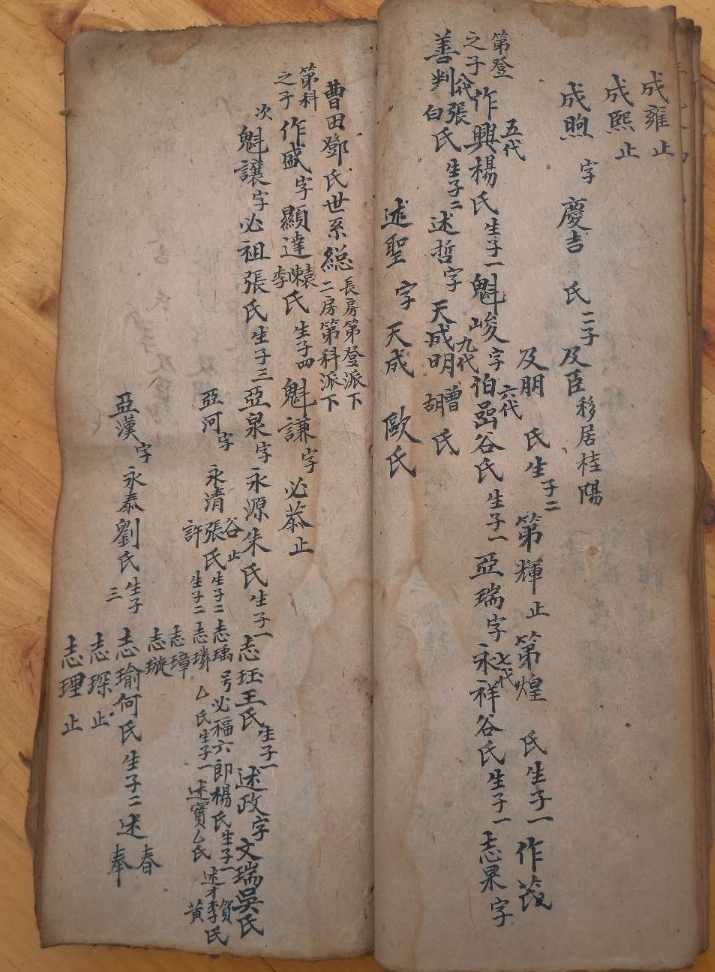 成雍止
成熙止
成煦 字 慶吉 氏 二子 及臣移居桂陽
及朋 氏生子二 第輝止 第煌 氏生子一 作筬
第登之子 作興 五代 楊氏生子一 魁峻字伯嵒 六代 谷氏生子一 亞瑞字永祥 七代 谷氏生子一 志果字
善判 八代 張白氏生子二 述哲字 天成明 九代 曾胡氏
述聖 字 天成 歐氏
曹田鄧氏世系總 長房第登派下 二房第科派下
第科之子 作盛字顯達 袁陳李氏生子四 魁謙字必恭止
次 魁讓字必祖張氏生子三 亞泉字永源朱氏生子一 志珏王氏生子一 述政字文瑞吳氏
亞河字 永清 谷止 張氏生子二 志瑀号必福六郎楊氏生子二 述才李氏
許 生子二 志璘 乙氏生子一 述寶乙氏 賀黃
志璋
志璇
亞漢字 永泰劉氏生子三 志瑜何氏生子二 述春 述奉
志琛止
志理止